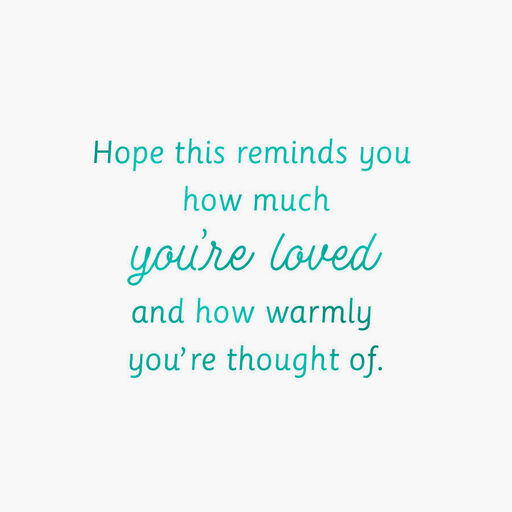 Hope this reminds you
how much
you're loved
and how warmly
you're thought of.